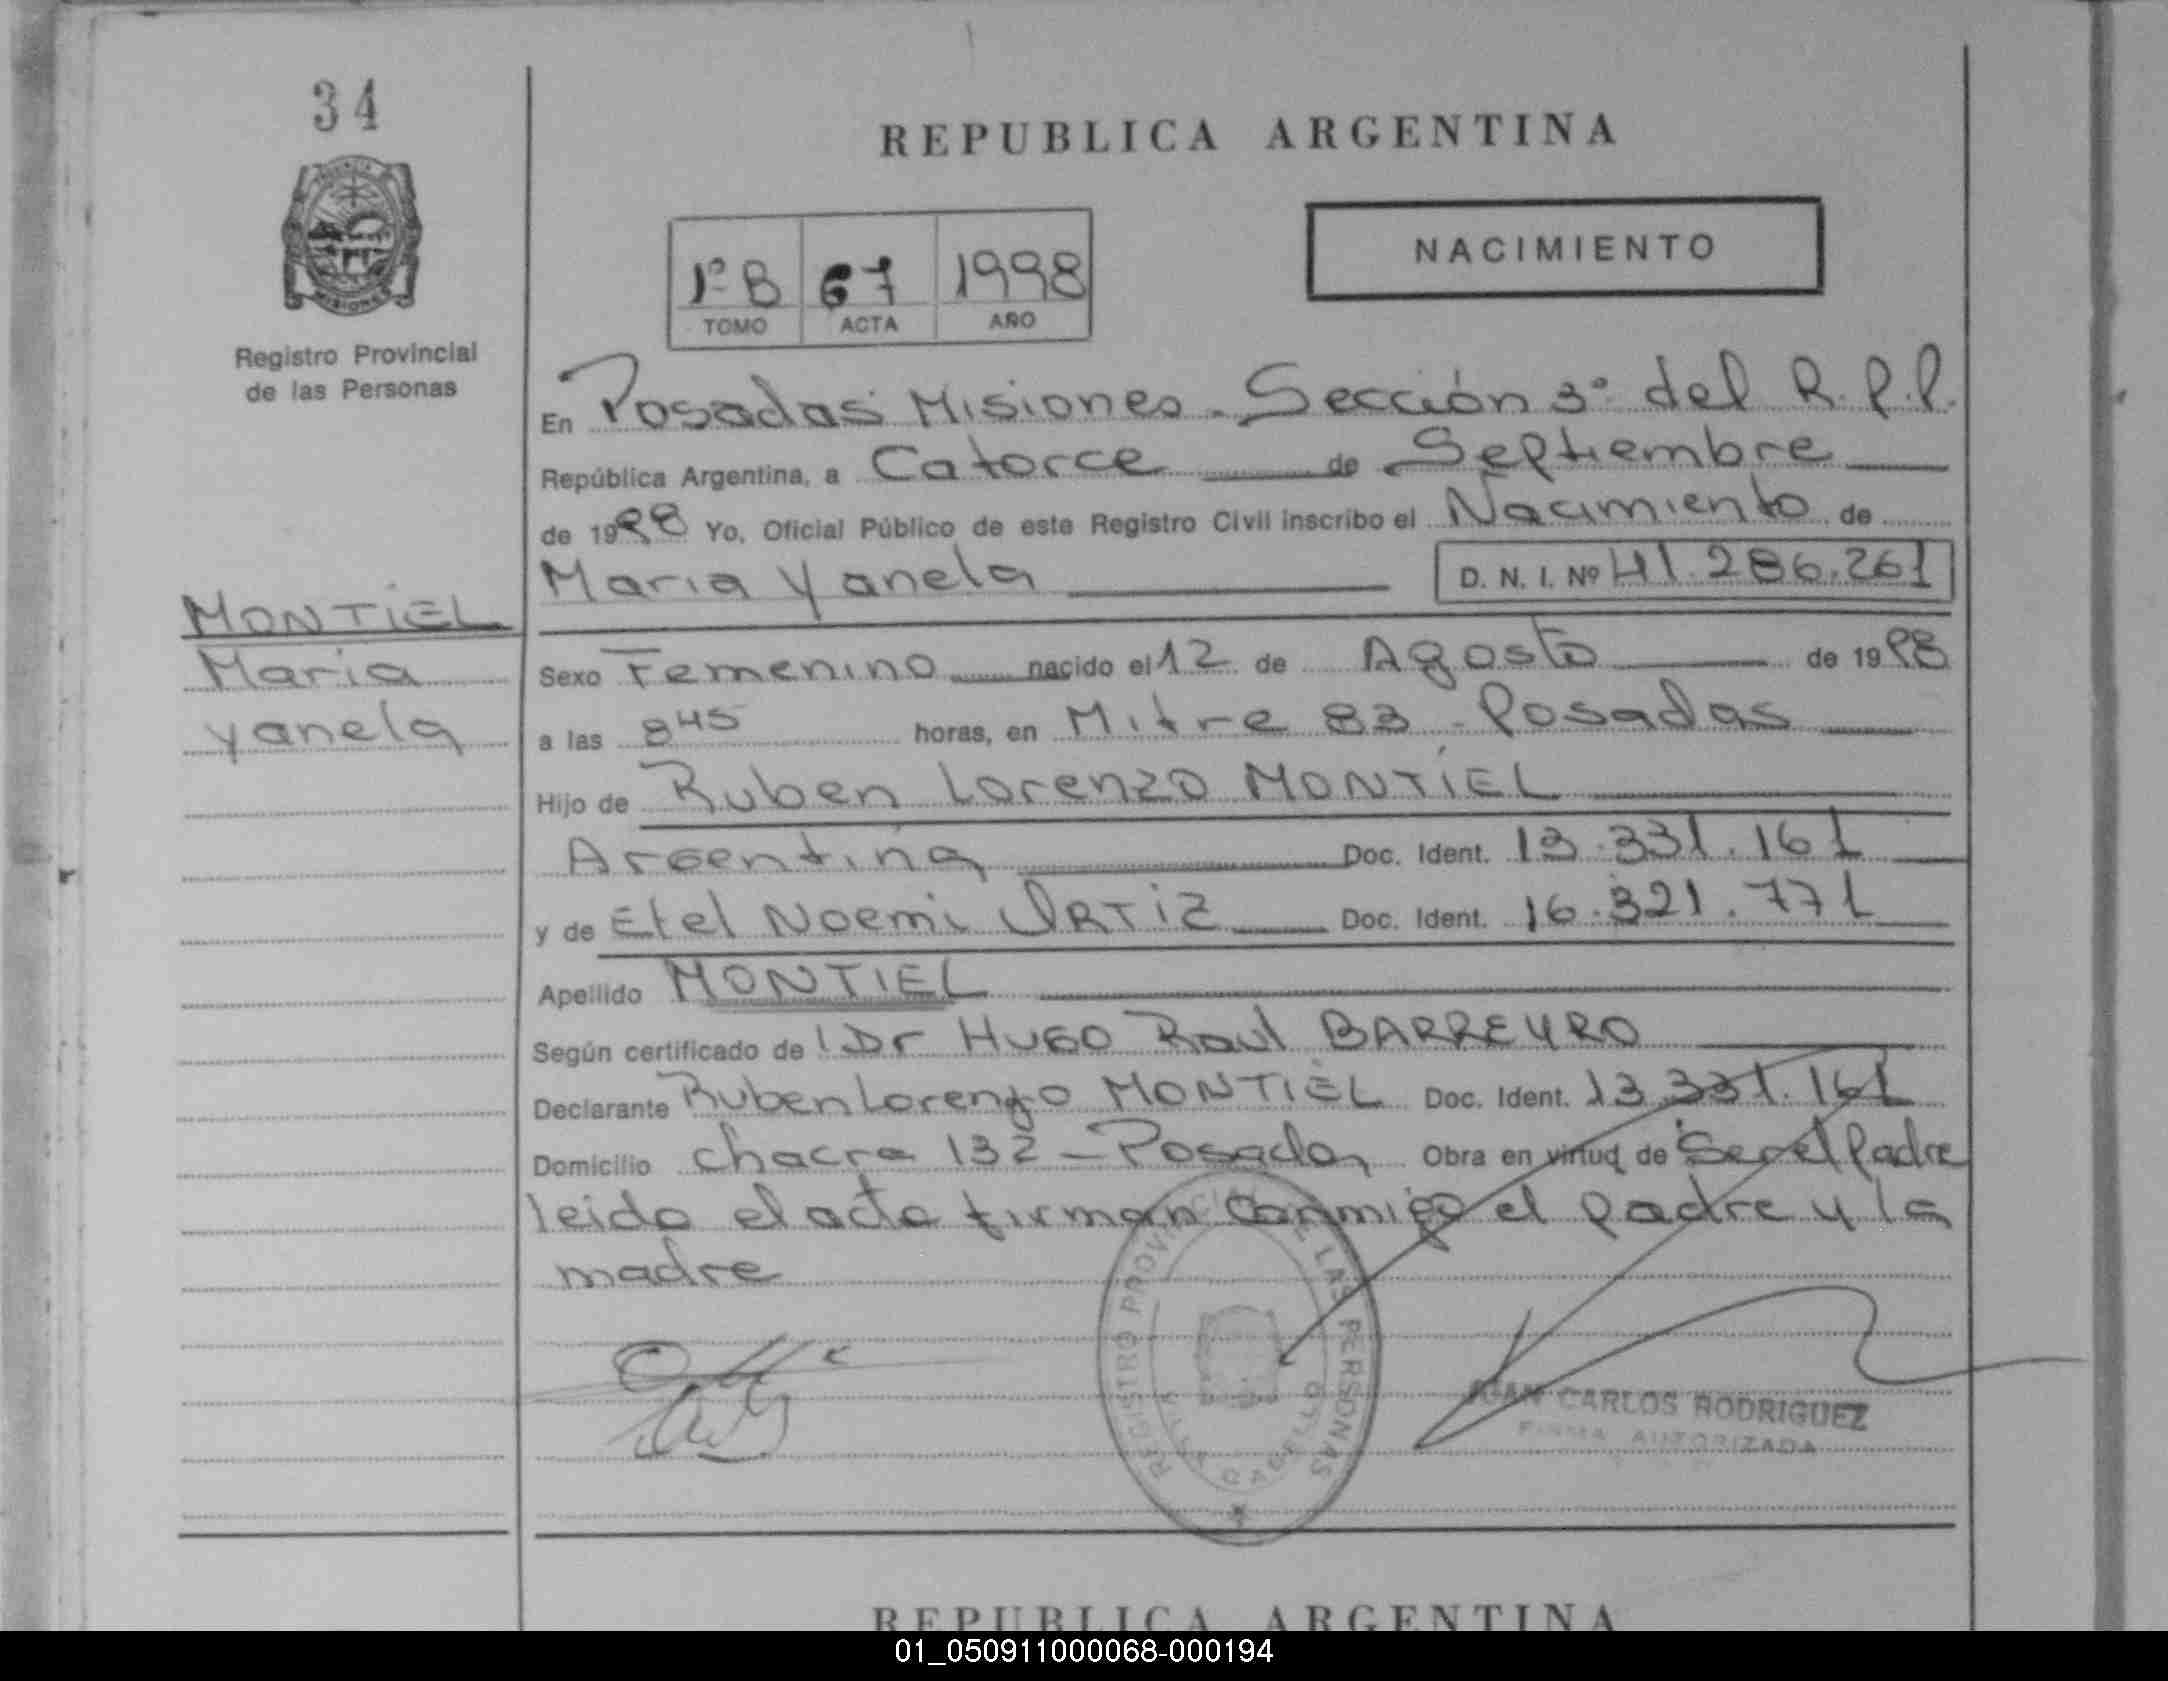 34
REPUBLICA ARGENTINA
NACIMIENTO
1º B 67 1998
TOMO ACTA AÑO
Registro Provincial
de las Personas
En Posadas Misiones - Sección 3º del R.P.P.
República Argentina, a Catorce de Septiembre
de 1998 Yo, Oficial Público de este Registro Civil inscribo el Nacimiento de
Maria Yanela D. N. I. Nº 41.286.261
MONTIEL
Maria
Yanela
Sexo Femenino nacido el 12 de Agosto de 1998
a las 8 45 horas, en Mitre 83 - Posadas
Hijo de Ruben Lorenzo MONTIEL
Argentina Doc. Ident. 13.331.161
y de Etel Noemi ORTIZ Doc. Ident. 16.321.771
Apellido MONTIEL
Según certificado de Dr Hugo Raul BARREYRO
Declarante Ruben Lorenzo MONTIEL Doc. Ident. 13.331.161
Domicilio chacra 132 - Posadas Obra en virtud de Ser el Padre
leido el acta firman conmigo el padre y la
madre
REGISTRO PROVINCIAL DE LAS PERSONAS
JUAN CARLOS RODRIGUEZ
FIRMA AUTORIZADA
REPUBLICA ARGENTINA
01_050911000068-000194